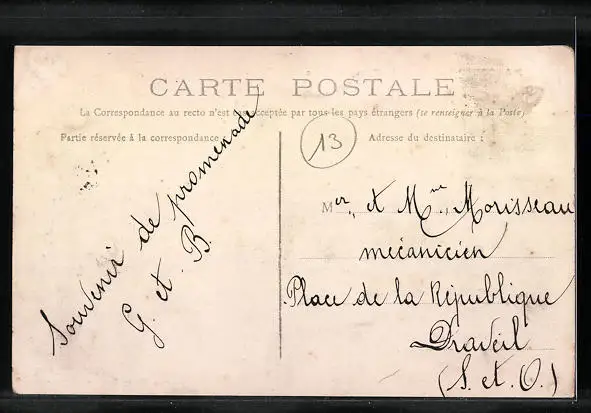 CARTE POSTALE
La Correspondance au recto n'est pas acceptée par tous les pays étrangers (se renseigner à la Poste)
Partie réservée à la correspondance
Adresse du destinataire :
13
Souvenir de promenade
G. et B.
Mer et Mme Morisseau
mécanicien
Place de la République
Draveil
(S. et O.)